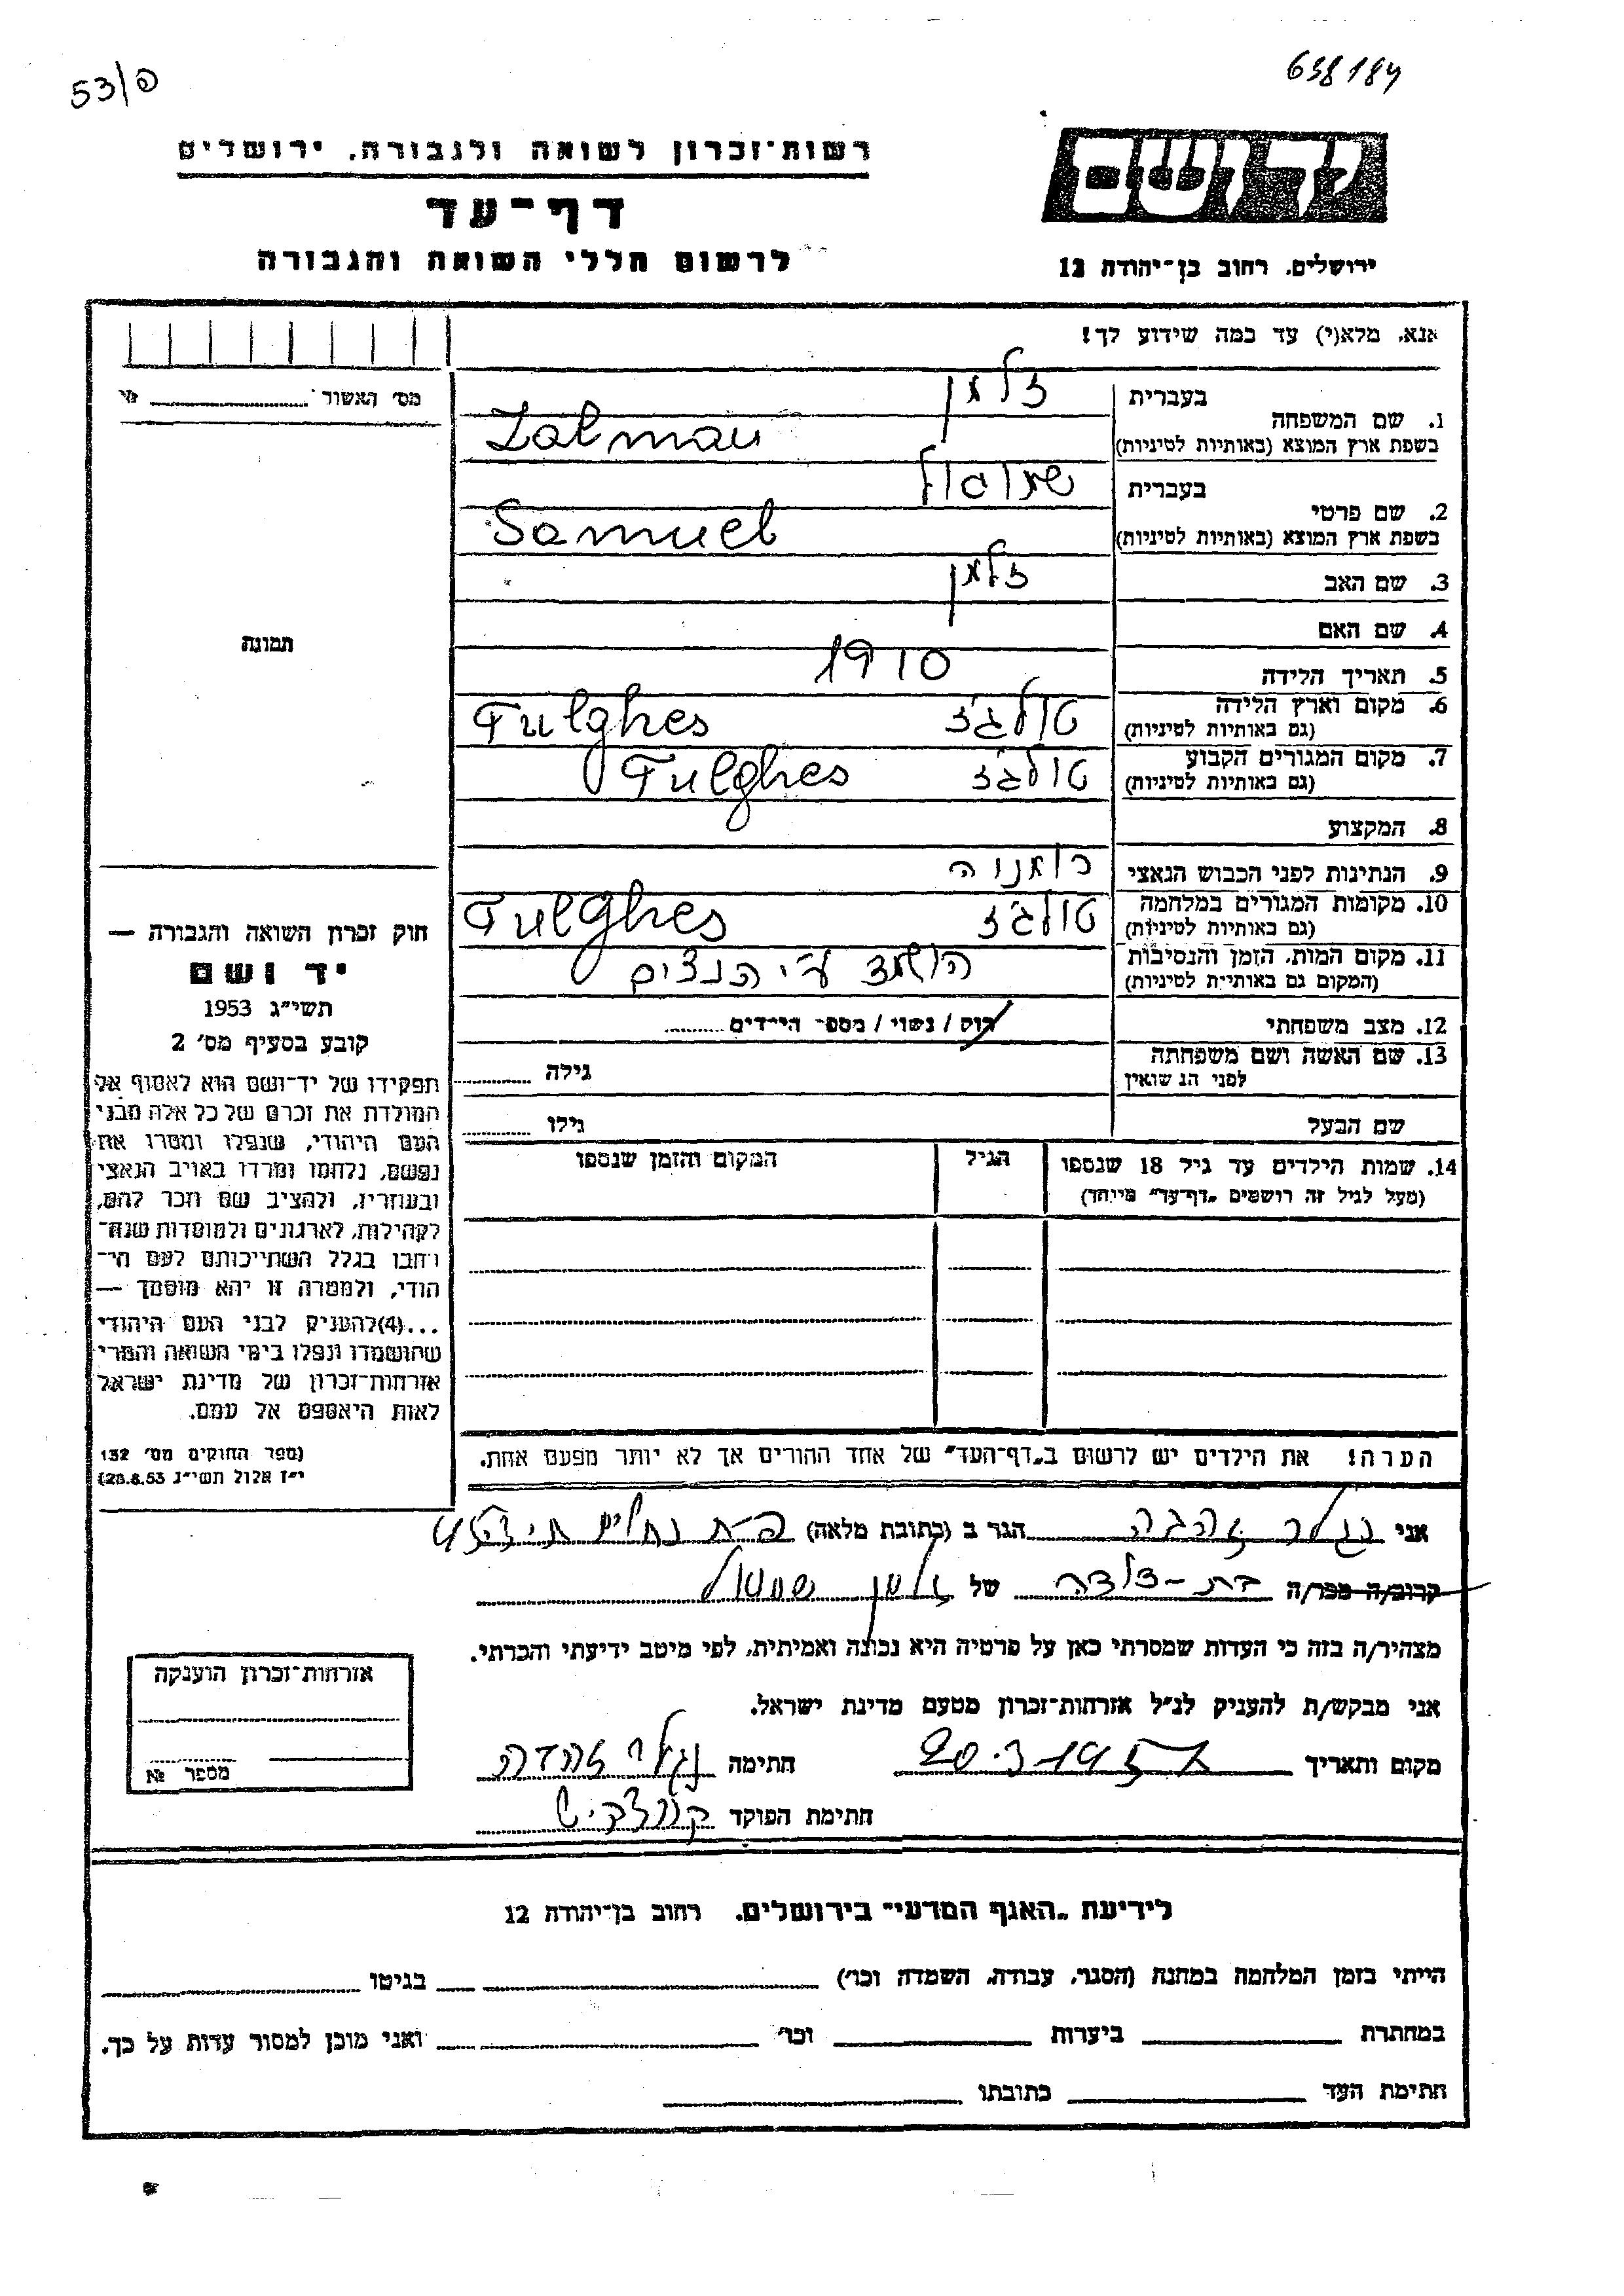 53/פ
638184
רשות-זכרון לשואה ולגבורה, ירושלים
דף-עד
לרשום חללי השואה והגבורה
ידושם
ירושלים, רחוב בן-יהודה 12
אנא, מלא(י) עד כמה שידוע לך!
מס׳ האשור №
1. שם המשפחה
בעברית זלמן
בשפת ארץ המוצא (באותיות לטיניות) Zalman
2. שם פרטי
בעברית שמואל
בשפת ארץ המוצא (באותיות לטיניות) Samuel
3. שם האב זלמן
4. שם האם
5. תאריך הלידה 1910
6. מקום וארץ הלידה טולגז Tulghes
(גם באותיות לטיניות)
7. מקום המגורים הקבוע טולגז Tulghes
(גם באותיות לטיניות)
8. המקצוע
9. הנתינות לפני הכבוש הנאצי רומניה
10. מקומות המגורים במלחמה טולגז Tulghes
(גם באותיות לטיניות)
11. מקום המות, הזמן והנסיבות הושמד ע״י הנצים
(המקום גם באותיות לטיניות)
12. מצב משפחתי רוק / נשוי / מספר הילדים
13. שם האשה ושם משפחתה גילה
לפני הנשואין
שם הבעל גילו
14. שמות הילדים עד גיל 18 שנספו הגיל המקום והזמן שנספו
(מעל לגיל זה רושמים „דף-עד״ מיוחד)
הערה! את הילדים יש לרשום ב„דף-העד״ של אחד ההורים אך לא יותר מפעם אחת.
תמונה
חוק זכרון השואה והגבורה —
יד ושם
תשי״ג 1953
קובע בסעיף מס׳ 2
תפקידו של יד-ושם הוא לאסוף אל
המולדת את זכרם של כל אלה מבני
העם היהודי, שנפלו ומסרו את
נפשם, נלחמו ומרדו באויב הנאצי
ובעוזריו, ולהציב שם וזכר להם,
לקהילות, לארגונים ולמוסדות שנח־
רבו בגלל השתייכותם לעם הי־
הודי, ולמטרה זו יהא מוסמך —
...(4)להעניק לבני העם היהודי
שהושמדו ונפלו בימי השואה והמרי
אזרחות-זכרון של מדינת ישראל
לאות היאספם אל עמם.
(ספר החוקים מס׳ 132
י״ז אלול תשי״ג 28.8.53)
אני זהבה הגר ב (כתובת מלאה)
קרוב/ה מכר/ה בת-דודה של זלמן שמואל
מצהיר/ה בזה כי העדות שמסרתי כאן על פרטיה היא נכונה ואמיתית, לפי מיטב ידיעתי והכרתי.
אני מבקש/ת להעניק לנ״ל אזרחות-זכרון מטעם מדינת ישראל.
מקום ותאריך 20.3.195 חתימה זהבה
חתימת הפוקד
אזרחות-זכרון הוענקה
מספר №
לידיעת „האגף המדעי״ בירושלים, רחוב בן-יהודה 12
הייתי בזמן המלחמה במחנה (הסגר, עבודה, השמדה וכו׳) בגיטו
במחתרת ביערות וכו׳ ואני מוכן למסור עדות על כך.
חתימת העד כתובתו